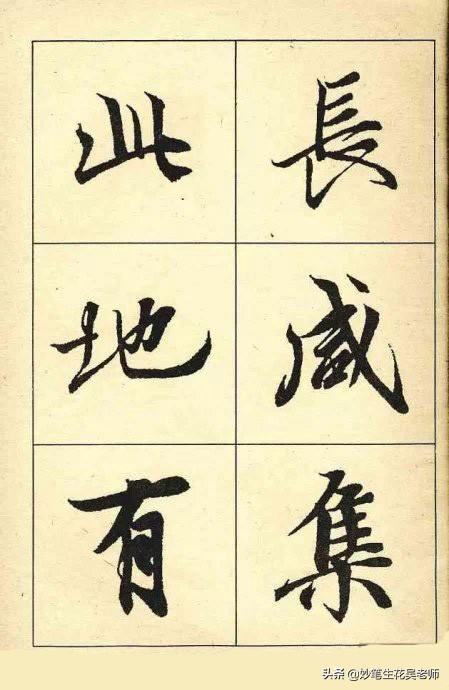 長咸集
此地有
头条 @妙笔生花吴老师